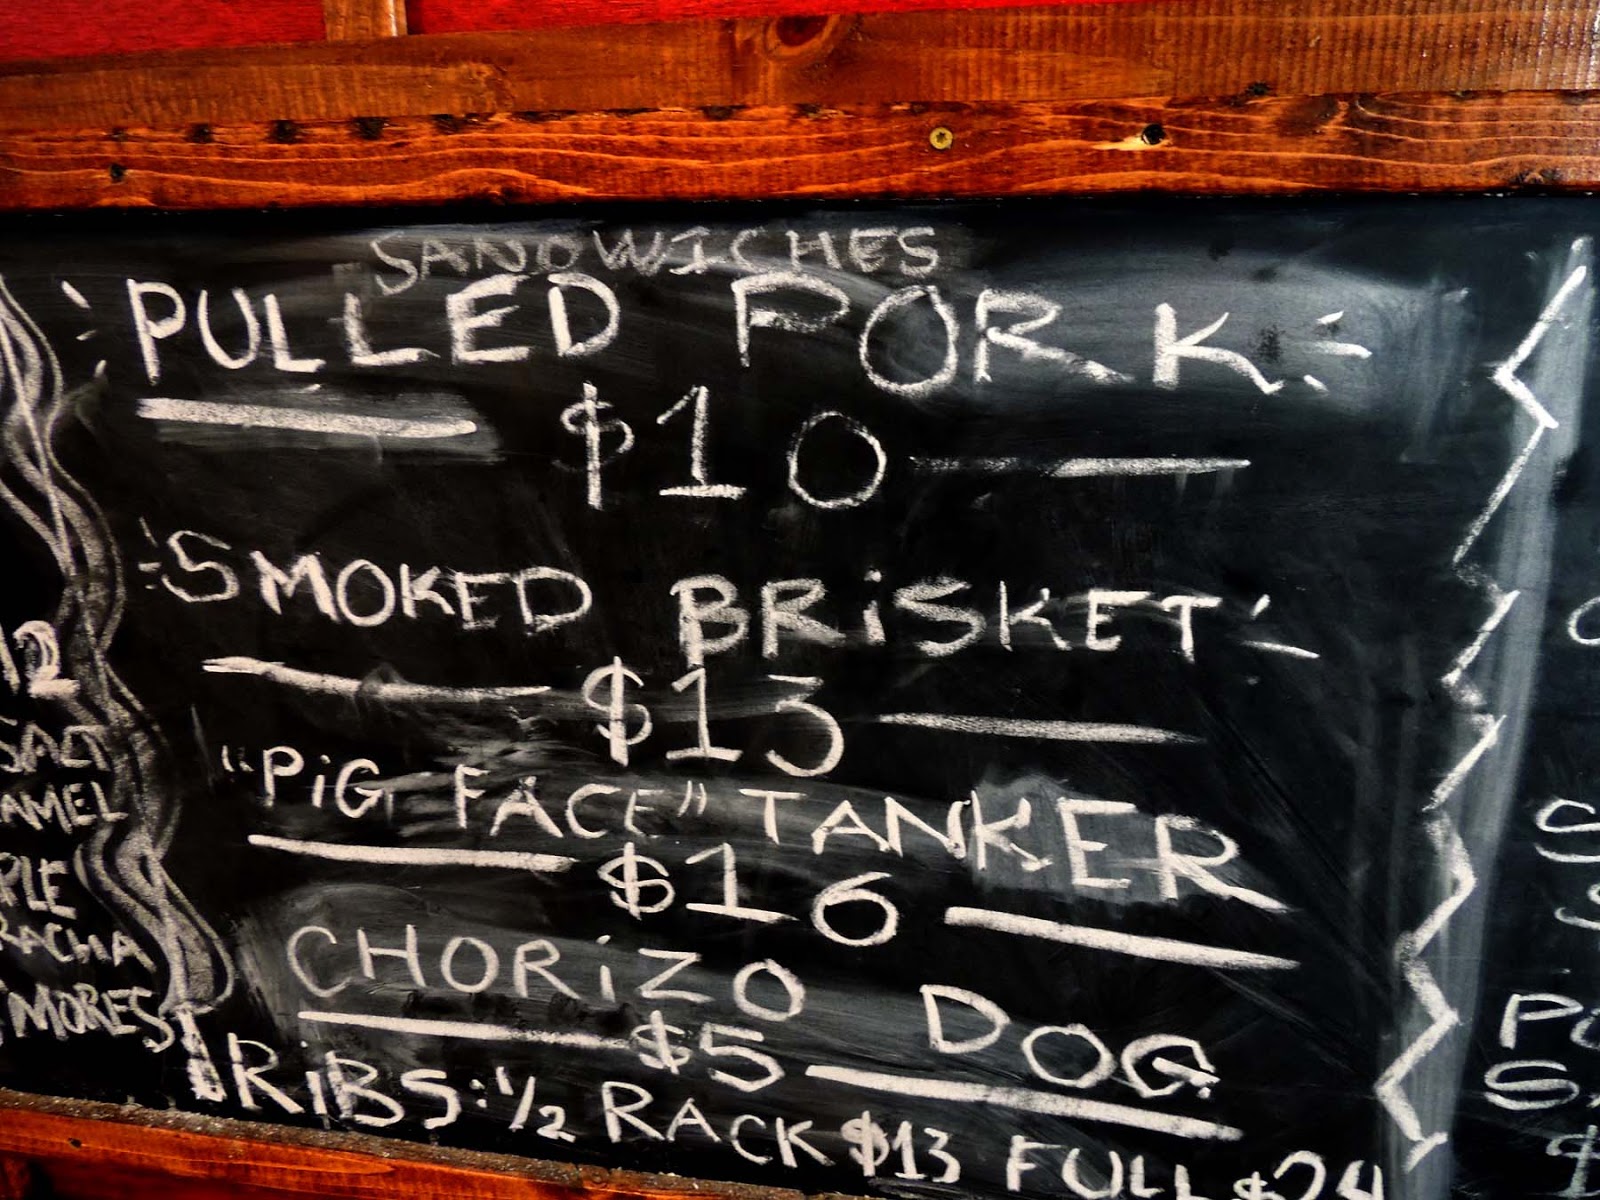 SANDWICHES
PULLED PORK
$10
SMOKED BRiSKET
$13
"PiG FACE" TANKER
$16
CHORiZO DOG
$5
RiBS: 1/2 RACK $13 FULL $24
12
SALT
AMEL
PLE
RACHA
S'MORES